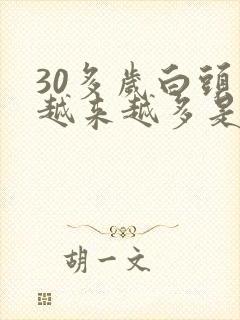 30多歲白頭
越来越多是
胡一文